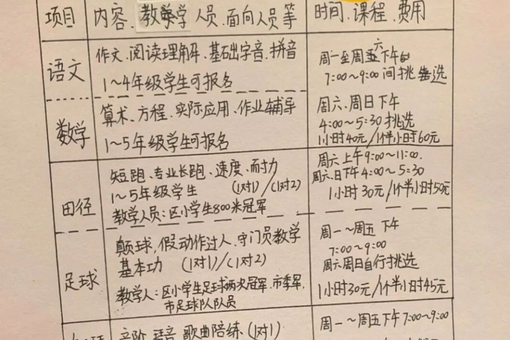 项目
内容、教学人员、面向人员等
时间、课程、费用
语文
作文、阅读理解、基础字音、拼音
1~4年级学生可报名
周一至周五六下午
7:00~9:00间挑选
数学
算术、方程、实际应用、作业辅导
1~5年级学生可报名
周六、周日下午
4:00~5:30挑选
1小时40元/1个半小时60元
田径
短跑、专业长跑、速度、耐力
1~5年级学生 (1对1)/(1对2)
教学人员:区小学生800米冠军
周六上午9:00~11:00.
周六、日下午4:00~5:30
1小时30元/1个半小时50元
足球
颠球、假动作过人、守门员教学
基本功 (1对1)/(1对2)
教学人:区小学生足球两次冠军、市季军、
市足球队队员
周一~周五下午
7:00~9:00
周六周日自行挑选
1小时30元/1个半小时45元
音阶、 歌曲陪练、(1对1)
周一~周五下午7:00~9:00